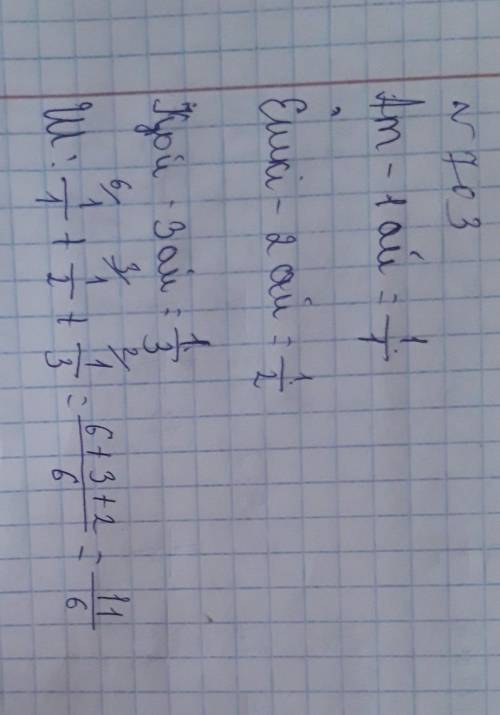 № 703
Ат - 1 ай = 1/1
Ешкі - 2 ай = 1/2
Қой - 3 ай = 1/3
Ш: 6/ 1/1 + 3/ 1/2 + 2/ 1/3 = (6+3+2)/6 = 11/6